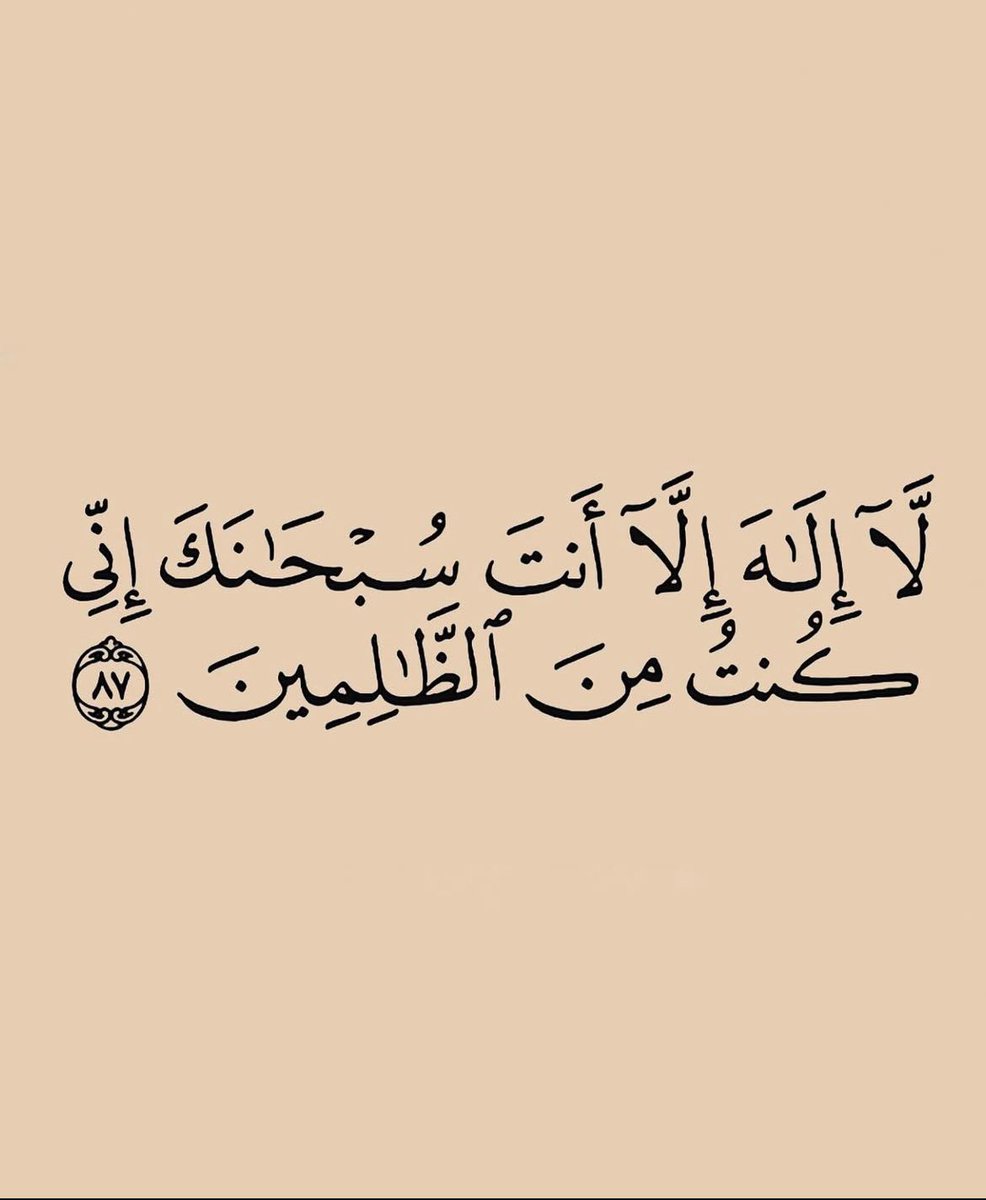 لَّآ إِلَـٰهَ إِلَّآ أَنتَ سُبْحَـٰنَكَ إِنِّى
كُنتُ مِنَ ٱلظَّـٰلِمِينَ ٨٧